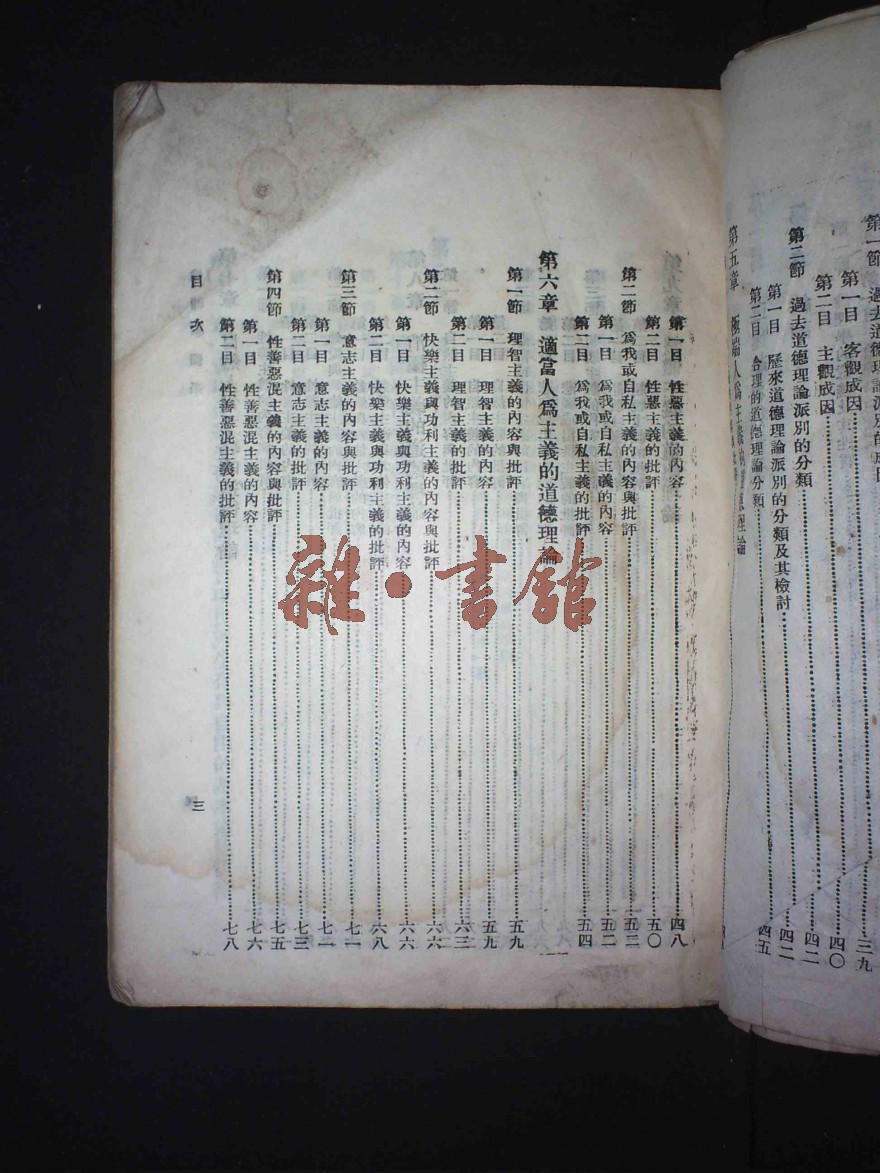 第一節 過去道德理論派別的成因
第一目 客觀成因……三九
第二目 主觀成因……四〇
第二節 過去道德理論派別的分類……四二
第一目 歷來道德理論派別的分類及其檢討……四二
第二目 合理的道德理論分類……四五
第五章 極端人爲主義的道德理論
第一目 性惡主義的內容……四八
第二目 性惡主義的批評……五〇
第二節 爲我或自私主義的內容與批評……五二
第一目 爲我或自私主義的內容……五二
第二目 爲我或自私主義的批評……五四
第六章 適當人爲主義的道德理論
第一節 理智主義的內容與批評……五九
第一目 理智主義的內容……五九
第二目 理智主義的批評……六三
第二節 快樂主義與功利主義的內容與批評……六六
第一目 快樂主義與功利主義的內容……六六
第二目 快樂主義與功利主義的批評……六八
第三節 意志主義的內容與批評……七一
第一目 意志主義的內容……七一
第二目 意志主義的批評……七三
第四節 性善惡混主義的內容與批評……七五
第一目 性善惡混主義的內容……七六
第二目 性善惡混主義的批評……七八
目次
三
雜·書館